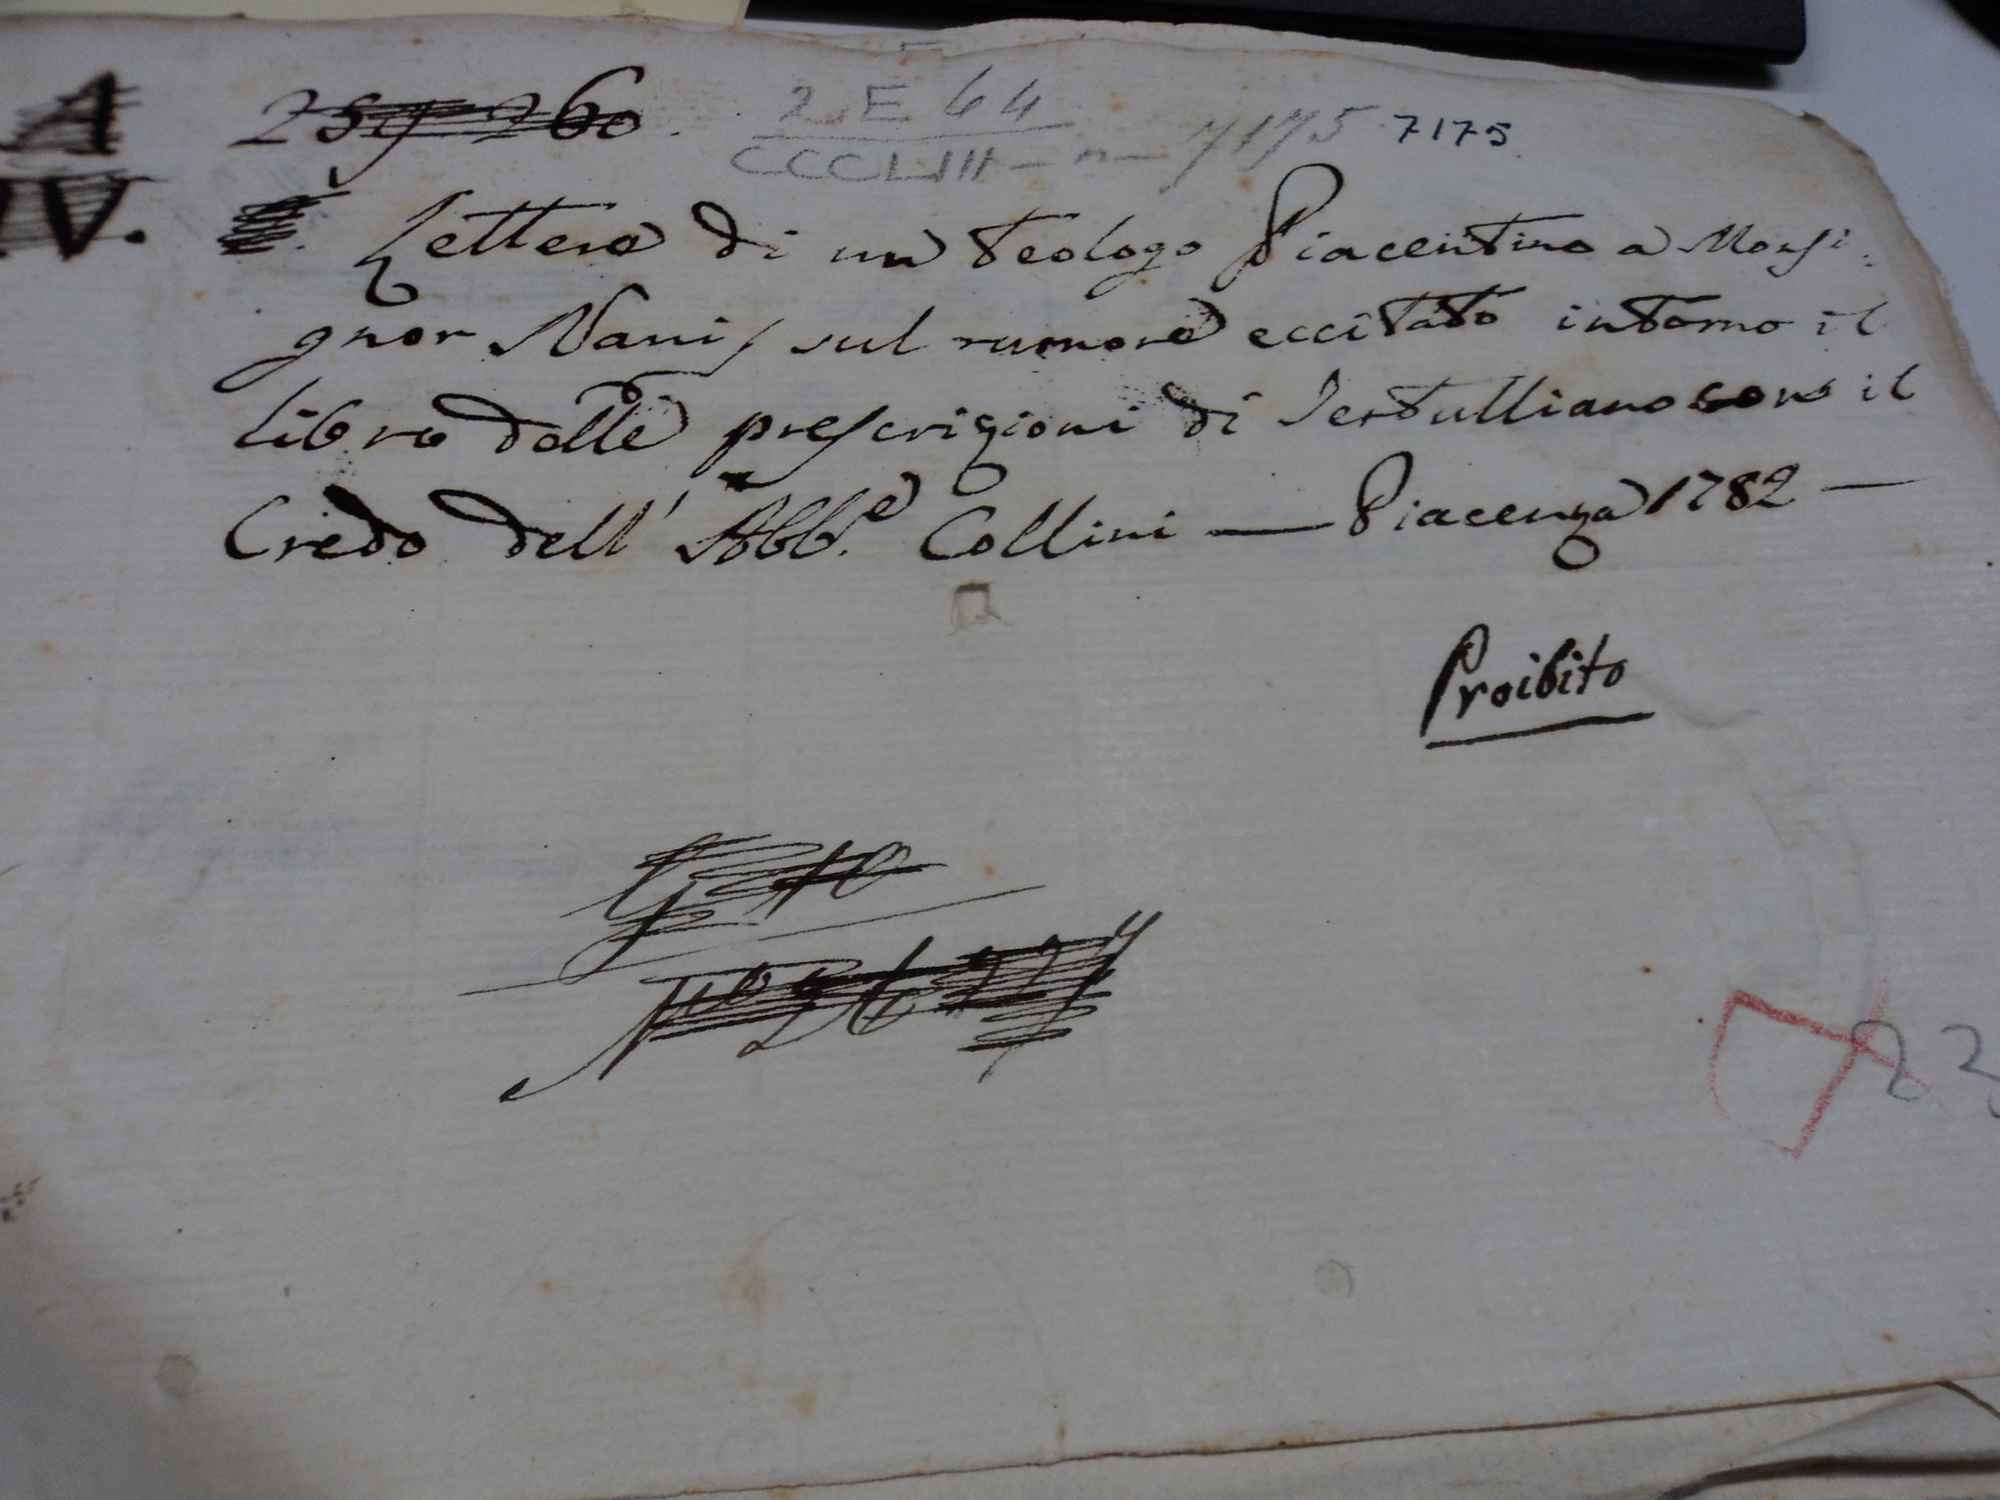 A
IV.
259 260.
2 E 44
CCCLIII - n - 7175 7175
Lettera di un teologo Piacentino a Monsi:
gnor Nani, sul rumore eccitato intorno il
libro delle prescrizioni di Tertulliano con il
Credo dell' Abb.e Collini — Piacenza 1782 —
Proibito
23